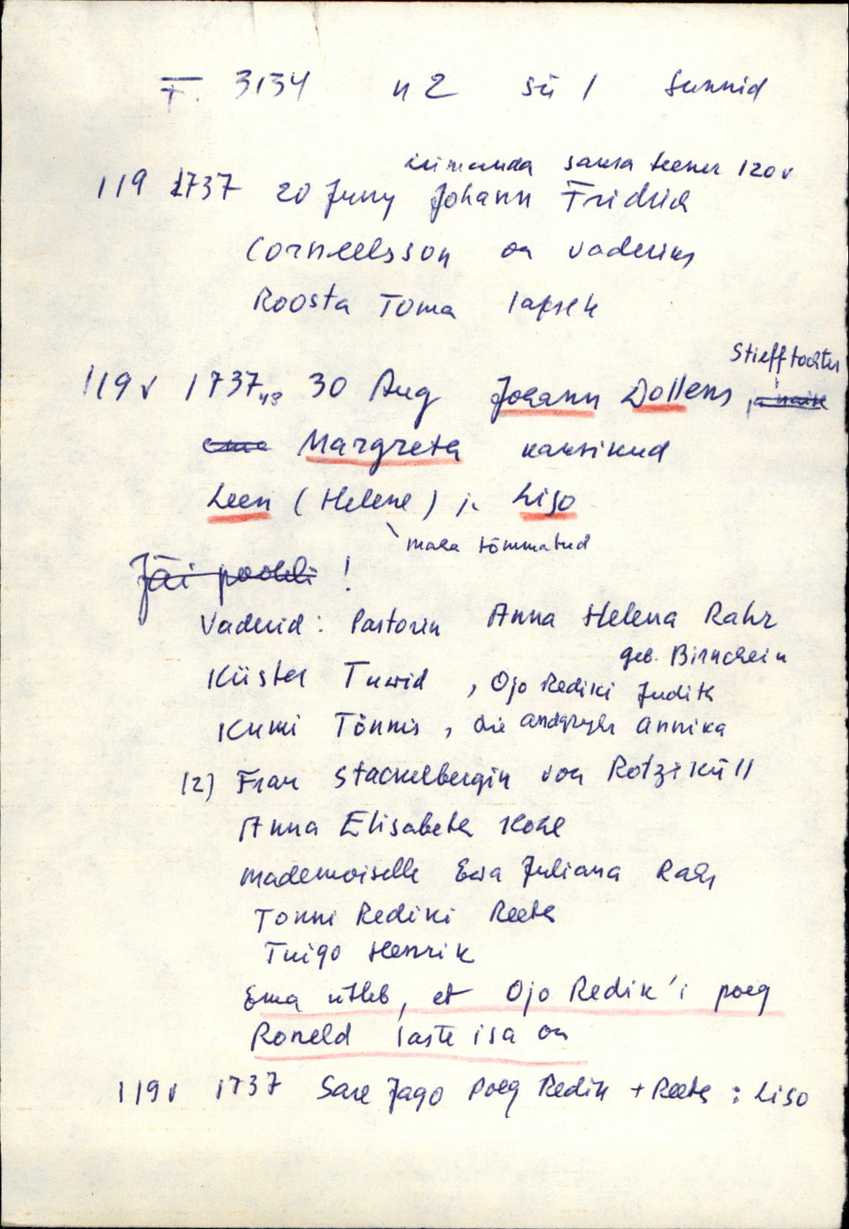 F. 3134 n 2 sü 1 Sünnid
kirimanda saksa teener 120v
119 1737 20 Juny Johann Fridrich
Corneelsson on vaderiks
Roosta Toma lapsele
Stieff tochter
119 v 1737 30 Aug Johann Dollens,
Margreta kaksikud
Leen (Helene) ja Liso
maha tõmmatud
Jäi pooleli !
Vaderid : Pastorin Anna Helena Rahr
geb. Birnchein
Küster Tuwid , Ojo Rediki Judith
Kumi Tönnis , die Annika
(2) Frau Stackelbergin von Rotziküll
Anna Elisabeth Hohl
Mademoiselle Ewa Juliana Rahr
Tonni Rediki Reeth
Tuigo Henrik
Ema ütleb, et Ojo Redik'i poeg
Roneld laste isa on
119v 1737 Sare Jago poeg Redik + Reeth : Liso